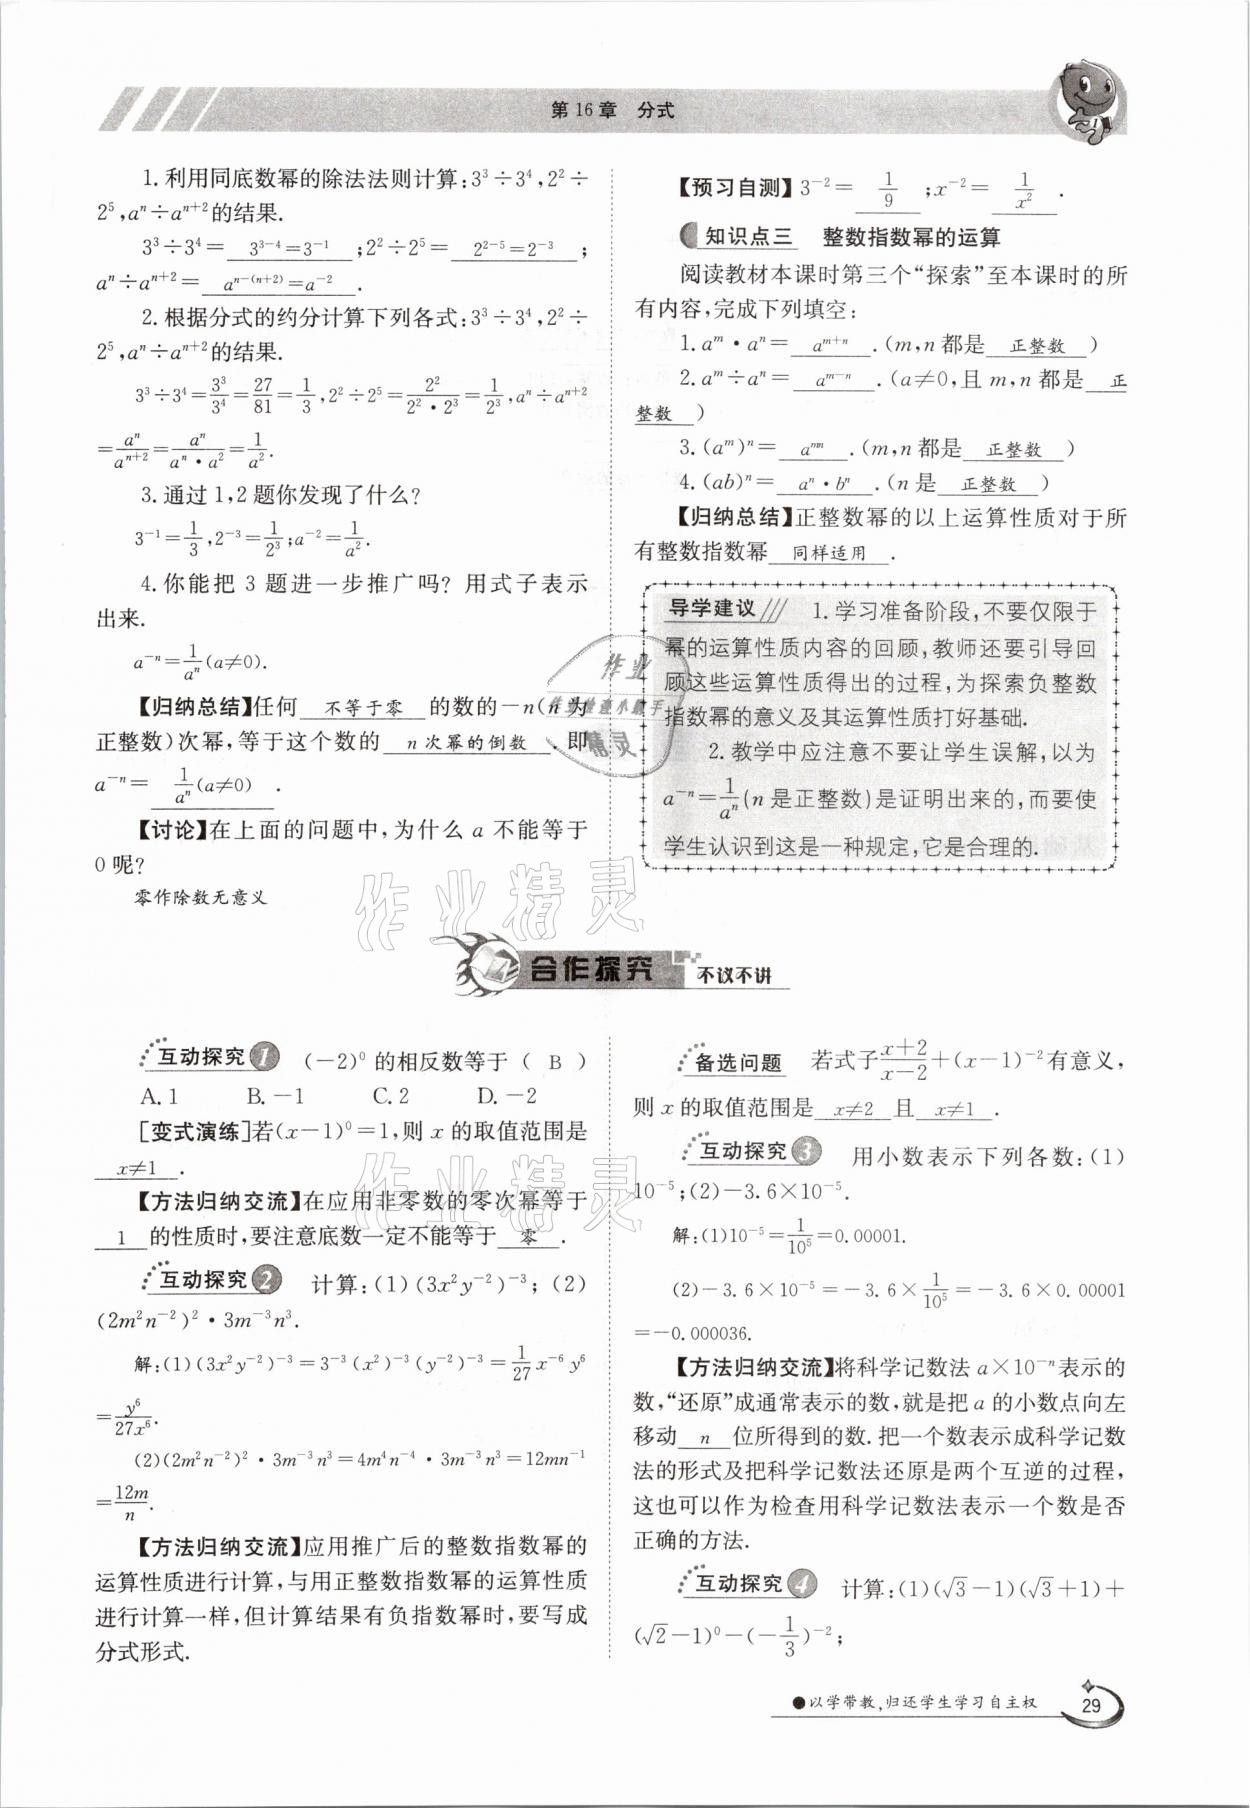 第16章 分式
1.利用同底数幂的除法法则计算:3³÷3⁴,2²÷
2⁵,aⁿ÷aⁿ⁺²的结果.
3³÷3⁴= 3³⁻⁴=3⁻¹ ;2²÷2⁵= 2²⁻⁵=2⁻³ ;
aⁿ÷aⁿ⁺²= aⁿ⁻⁽ⁿ⁺²⁾=a⁻² .
2.根据分式的约分计算下列各式:3³÷3⁴,2²÷
2⁵,aⁿ÷aⁿ⁺²的结果.
3³÷3⁴=3³/3⁴=27/81=1/3,2²÷2⁵=2²/(2²·2³)=1/2³,aⁿ÷aⁿ⁺²
=aⁿ/aⁿ⁺²=aⁿ/(aⁿ·a²)=1/a².
3.通过1,2题你发现了什么?
3⁻¹=1/3,2⁻³=1/2³;a⁻²=1/a².
4.你能把3题进一步推广吗? 用式子表示
出来.
a⁻ⁿ=1/aⁿ(a≠0).
【归纳总结】任何 不等于零 的数的-n(n为
正整数)次幂,等于这个数的 n次幂的倒数 .即
a⁻ⁿ= 1/aⁿ(a≠0) .
【讨论】在上面的问题中,为什么a不能等于
0呢?
零作除数无意义
【预习自测】3⁻²= 1/9 ;x⁻²= 1/x² .
知识点三 整数指数幂的运算
阅读教材本课时第三个“探索”至本课时的所
有内容,完成下列填空:
1.aᵐ·aⁿ= aᵐ⁺ⁿ .(m,n都是 正整数 )
2.aᵐ÷aⁿ= aᵐ⁻ⁿ .(a≠0,且m,n都是 正
整数 )
3.(aᵐ)ⁿ= aᵐⁿ .(m,n都是 正整数 )
4.(ab)ⁿ= aⁿ·bⁿ .(n是 正整数 )
【归纳总结】正整数幂的以上运算性质对于所
有整数指数幂 同样适用 .
导学建议 1.学习准备阶段,不要仅限于
幂的运算性质内容的回顾,教师还要引导回
顾这些运算性质得出的过程,为探索负整数
指数幂的意义及其运算性质打好基础.
2.教学中应注意不要让学生误解,以为
a⁻ⁿ=1/aⁿ(n是正整数)是证明出来的,而要使
学生认识到这是一种规定,它是合理的.
合作探究 不议不讲
互动探究1 (-2)⁰的相反数等于( B )
A.1 B.-1 C.2 D.-2
[变式演练]若(x-1)⁰=1,则x的取值范围是
x≠1 .
【方法归纳交流】在应用非零数的零次幂等于
1 的性质时,要注意底数一定不能等于 零 .
互动探究2 计算:(1)(3x²y⁻²)⁻³;(2)
(2m²n⁻²)²·3m⁻³n³.
解:(1)(3x²y⁻²)⁻³=3⁻³(x²)⁻³(y⁻²)⁻³=1/27x⁻⁶y⁶
=y⁶/27x⁶.
(2)(2m²n⁻²)²·3m⁻³n³=4m⁴n⁻⁴·3m⁻³n³=12mn⁻¹
=12m/n.
【方法归纳交流】应用推广后的整数指数幂的
运算性质进行计算,与用正整数指数幂的运算性质
进行计算一样,但计算结果有负指数幂时,要写成
分式形式.
备选问题 若式子(x+2)/(x-2)+(x-1)⁻²有意义,
则x的取值范围是 x≠2 且 x≠1 .
互动探究3 用小数表示下列各数:(1)
10⁻⁵;(2)-3.6×10⁻⁵.
解:(1)10⁻⁵=1/10⁵=0.00001.
(2)-3.6×10⁻⁵=-3.6×1/10⁵=-3.6×0.00001
=-0.000036.
【方法归纳交流】将科学记数法a×10⁻ⁿ表示的
数,“还原”成通常表示的数,就是把a的小数点向左
移动 n 位所得到的数.把一个数表示成科学记数
法的形式及把科学记数法还原是两个互逆的过程,
这也可以作为检查用科学记数法表示一个数是否
正确的方法.
互动探究4 计算:(1)(√3-1)(√3+1)+
(√2-1)⁰-(-1/3)⁻²;
●以学带教,归还学生学习自主权
29
作业精灵
作业精灵
作业
精灵